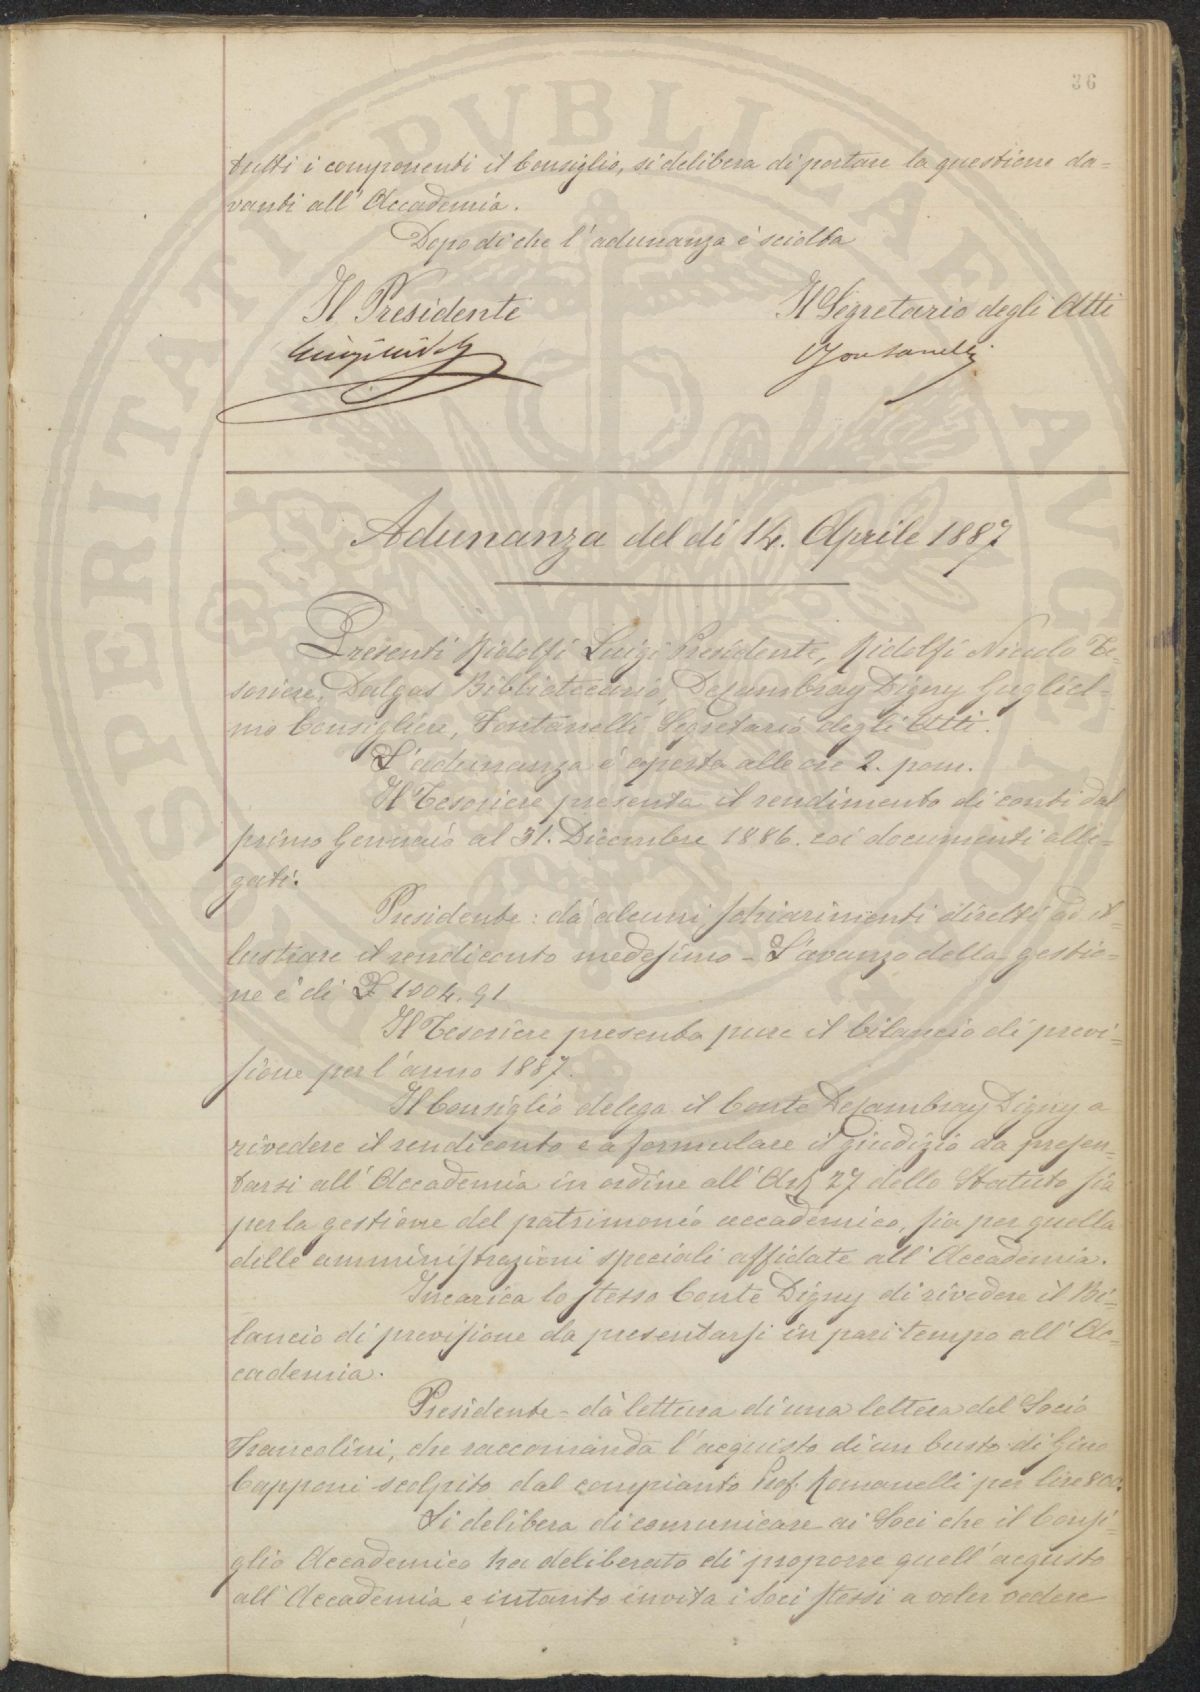 36
tutti i componenti il Consiglio, si delibera di portare la questione da=
vanti all'Accademia.
Dopo di che l'adunanza è sciolta
Il Presidente
Il Segretario degli Atti
Luigi Ridolfi
Fontanelli
Adunanza del dì 14. Aprile 1887
Presenti Ridolfi Luigi Presidente, Ridolfi Niccolò Te-
soriere, Dalgas Bibliotecario, DeCambray Digny Gugliel-
mo Consigliere, Fontanelli Segretario degli Atti.
L'adunanza è aperta alle ore 2. pom.
Il Tesoriere presenta il rendimento di conti dal
primo Gennaio al 31. Dicembre 1886. coi documenti alle=
gati.
Presidente: dà alcuni schiarimenti diretti ad il=
lustrare il rendiconto medesimo - L'avanzo della gestio=
ne è di £ 1004.91
Il Tesoriere presenta pure il bilancio di previ=
sione per l'anno 1887.
Il Consiglio delega il Conte DeCambray Digny a
rivedere il rendiconto e a formulare il giudizio da presen-
tarsi all'Accademia in ordine all'Art 27 dello Statuto sia
per la gestione del patrimonio accademico, sia per quella
delle amministrazioni speciali affidate all'Accademia.
Incarica lo stesso Conte Digny di rivedere il Bi-
lancio di previsione da presentarsi in pari tempo all'Ac-
cademia.
Presidente - dà lettura di una lettera del Socio
Francolini, che raccomanda l'acquisto di un busto di Gino
Capponi scolpito dal compianto Prof. Romanelli per lire 800.
Si delibera di comunicare ai Soci che il Consi-
glio Accademico ha deliberato di proporre quell'acquisto
all'Accademia e intanto invita i Soci stessi a voler vedere
SPERITATI PVBLICAE AVGENDAE